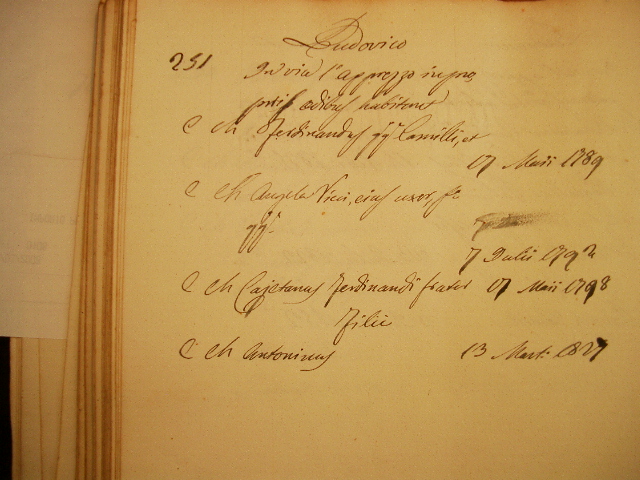 Ludovico
251
In via l'apprezzo in pro
prijs ædibus habitant
C Ch Ferdinandus qq.m Camilli, et
07 Maii 1789
C Ch Angela Vicci, eius uxor, fa
qq.m
7 Julii 179
C Ch Cajetanus Ferdinandi frater 07 Maii 1798
Filii
C Ch Antoninus 13 Mart. 1827